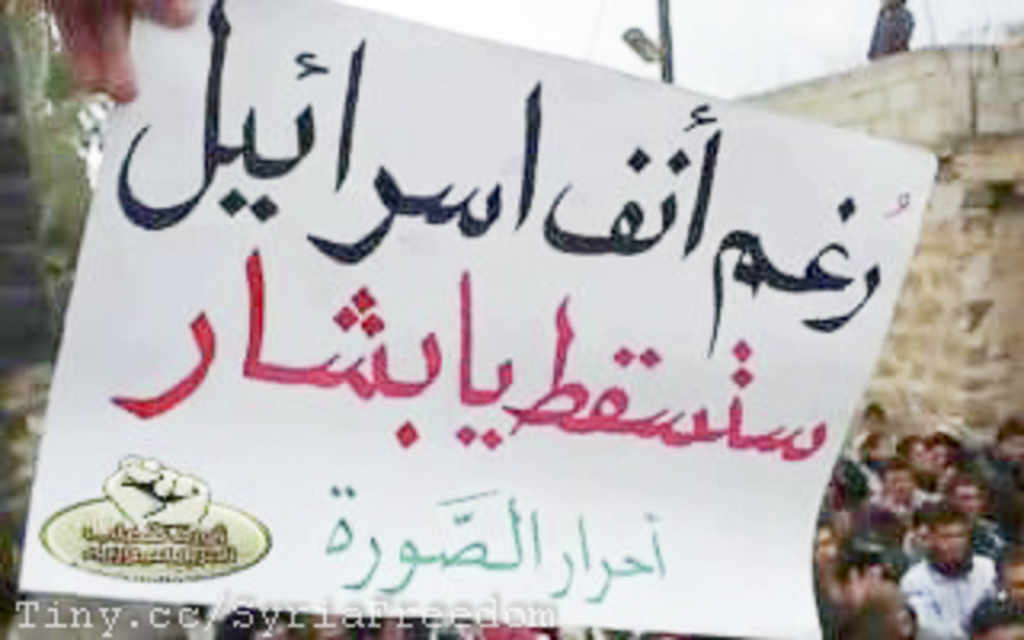 رُغم أنف اسرائيل
ستسقط يا بشار
احرار الصَّورة
Tiny.cc/SyriaFreedom